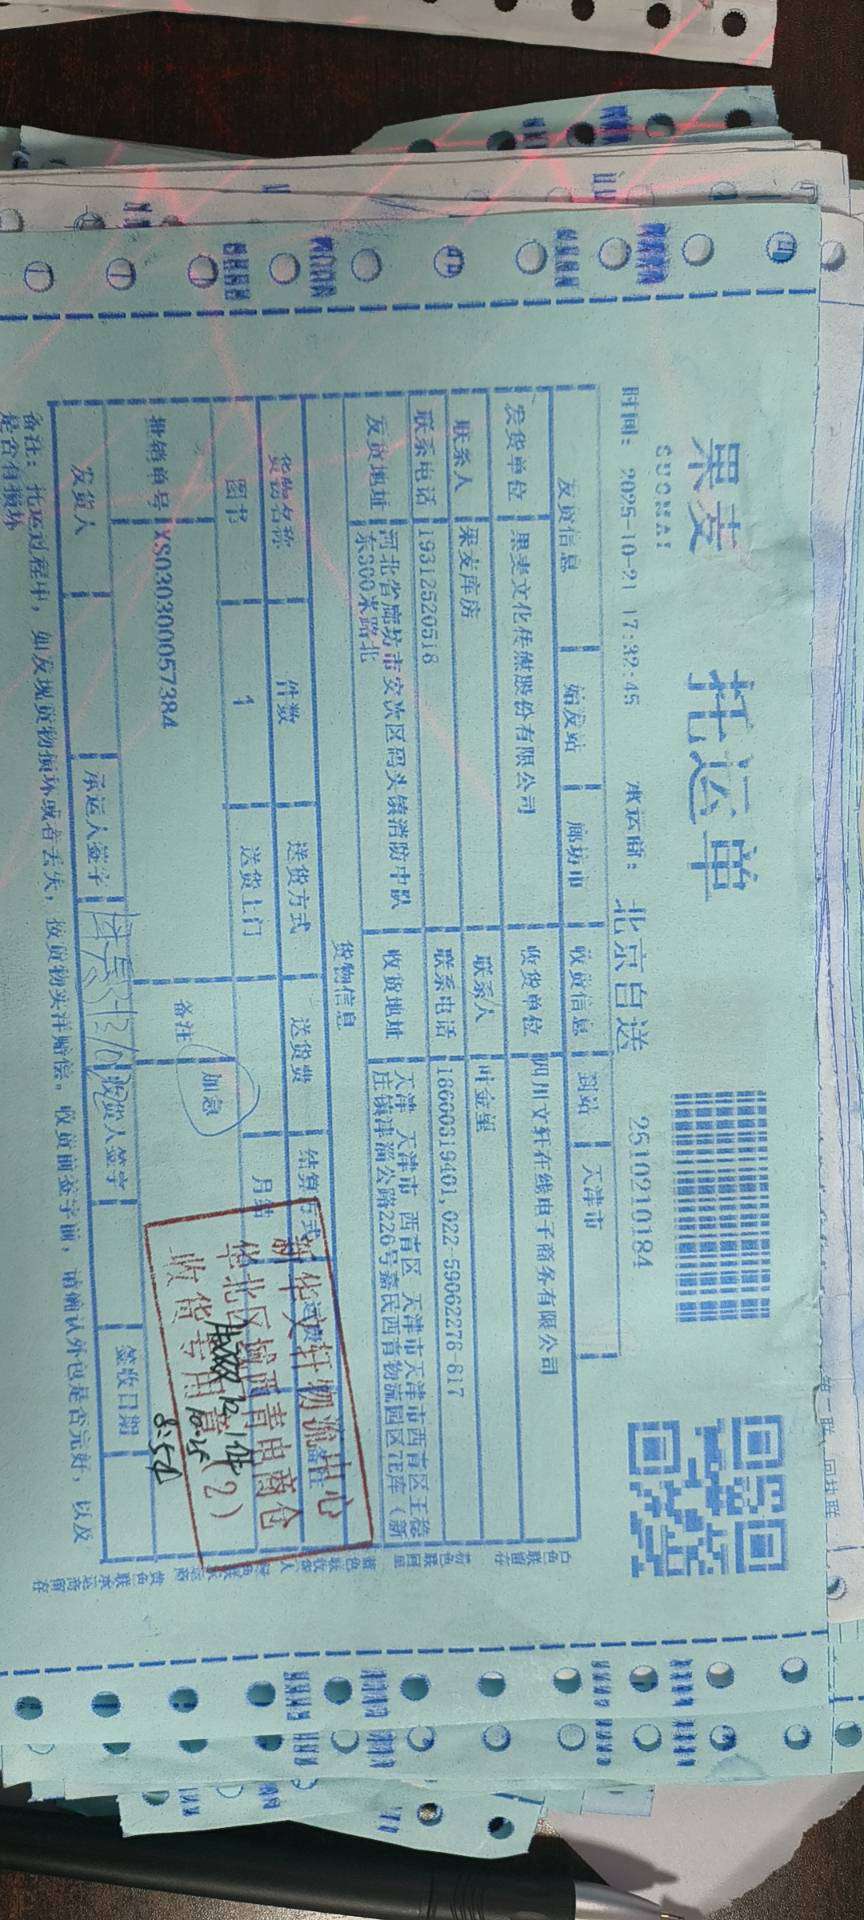 果麦
托运单
GUOMAI
时间: 2025-10-21 17:32:45
承运商: 北京自送
2510210184
发货信息 始发站 廊坊市 收货信息 到站 天津市
发货单位 果麦文化传媒股份有限公司 收货单位 四川文轩在线电子商务有限公司
联系人 果麦库房 联系人 叶金星
联系电话 19312520518 联系电话 18600319401,022-59062276-817
发货地址 河北省廊坊市安次区码头镇消防中队东300米路北 收货地址 天津 天津市 西青区 天津市天津市西青区王稳庄镇津淄公路226号嘉民西青物流园区7E库(新
货物信息
货物名称 件数 送货方式 送货费 结算方式
图书 1 送货上门 月结
批销单号 XS030300057384 备注 加急
发货人 承运人签字 收货人签字 签收日期
备注: 托运过程中, 如发现货物损坏或者丢失, 按货物实洋赔偿。收货前签字前, 请确认外包是否完好, 以及
是否有损坏
新华文轩物流中心
华北区域西青电商仓
收货专用章(2)
10.25
8:54
第二联 回执联